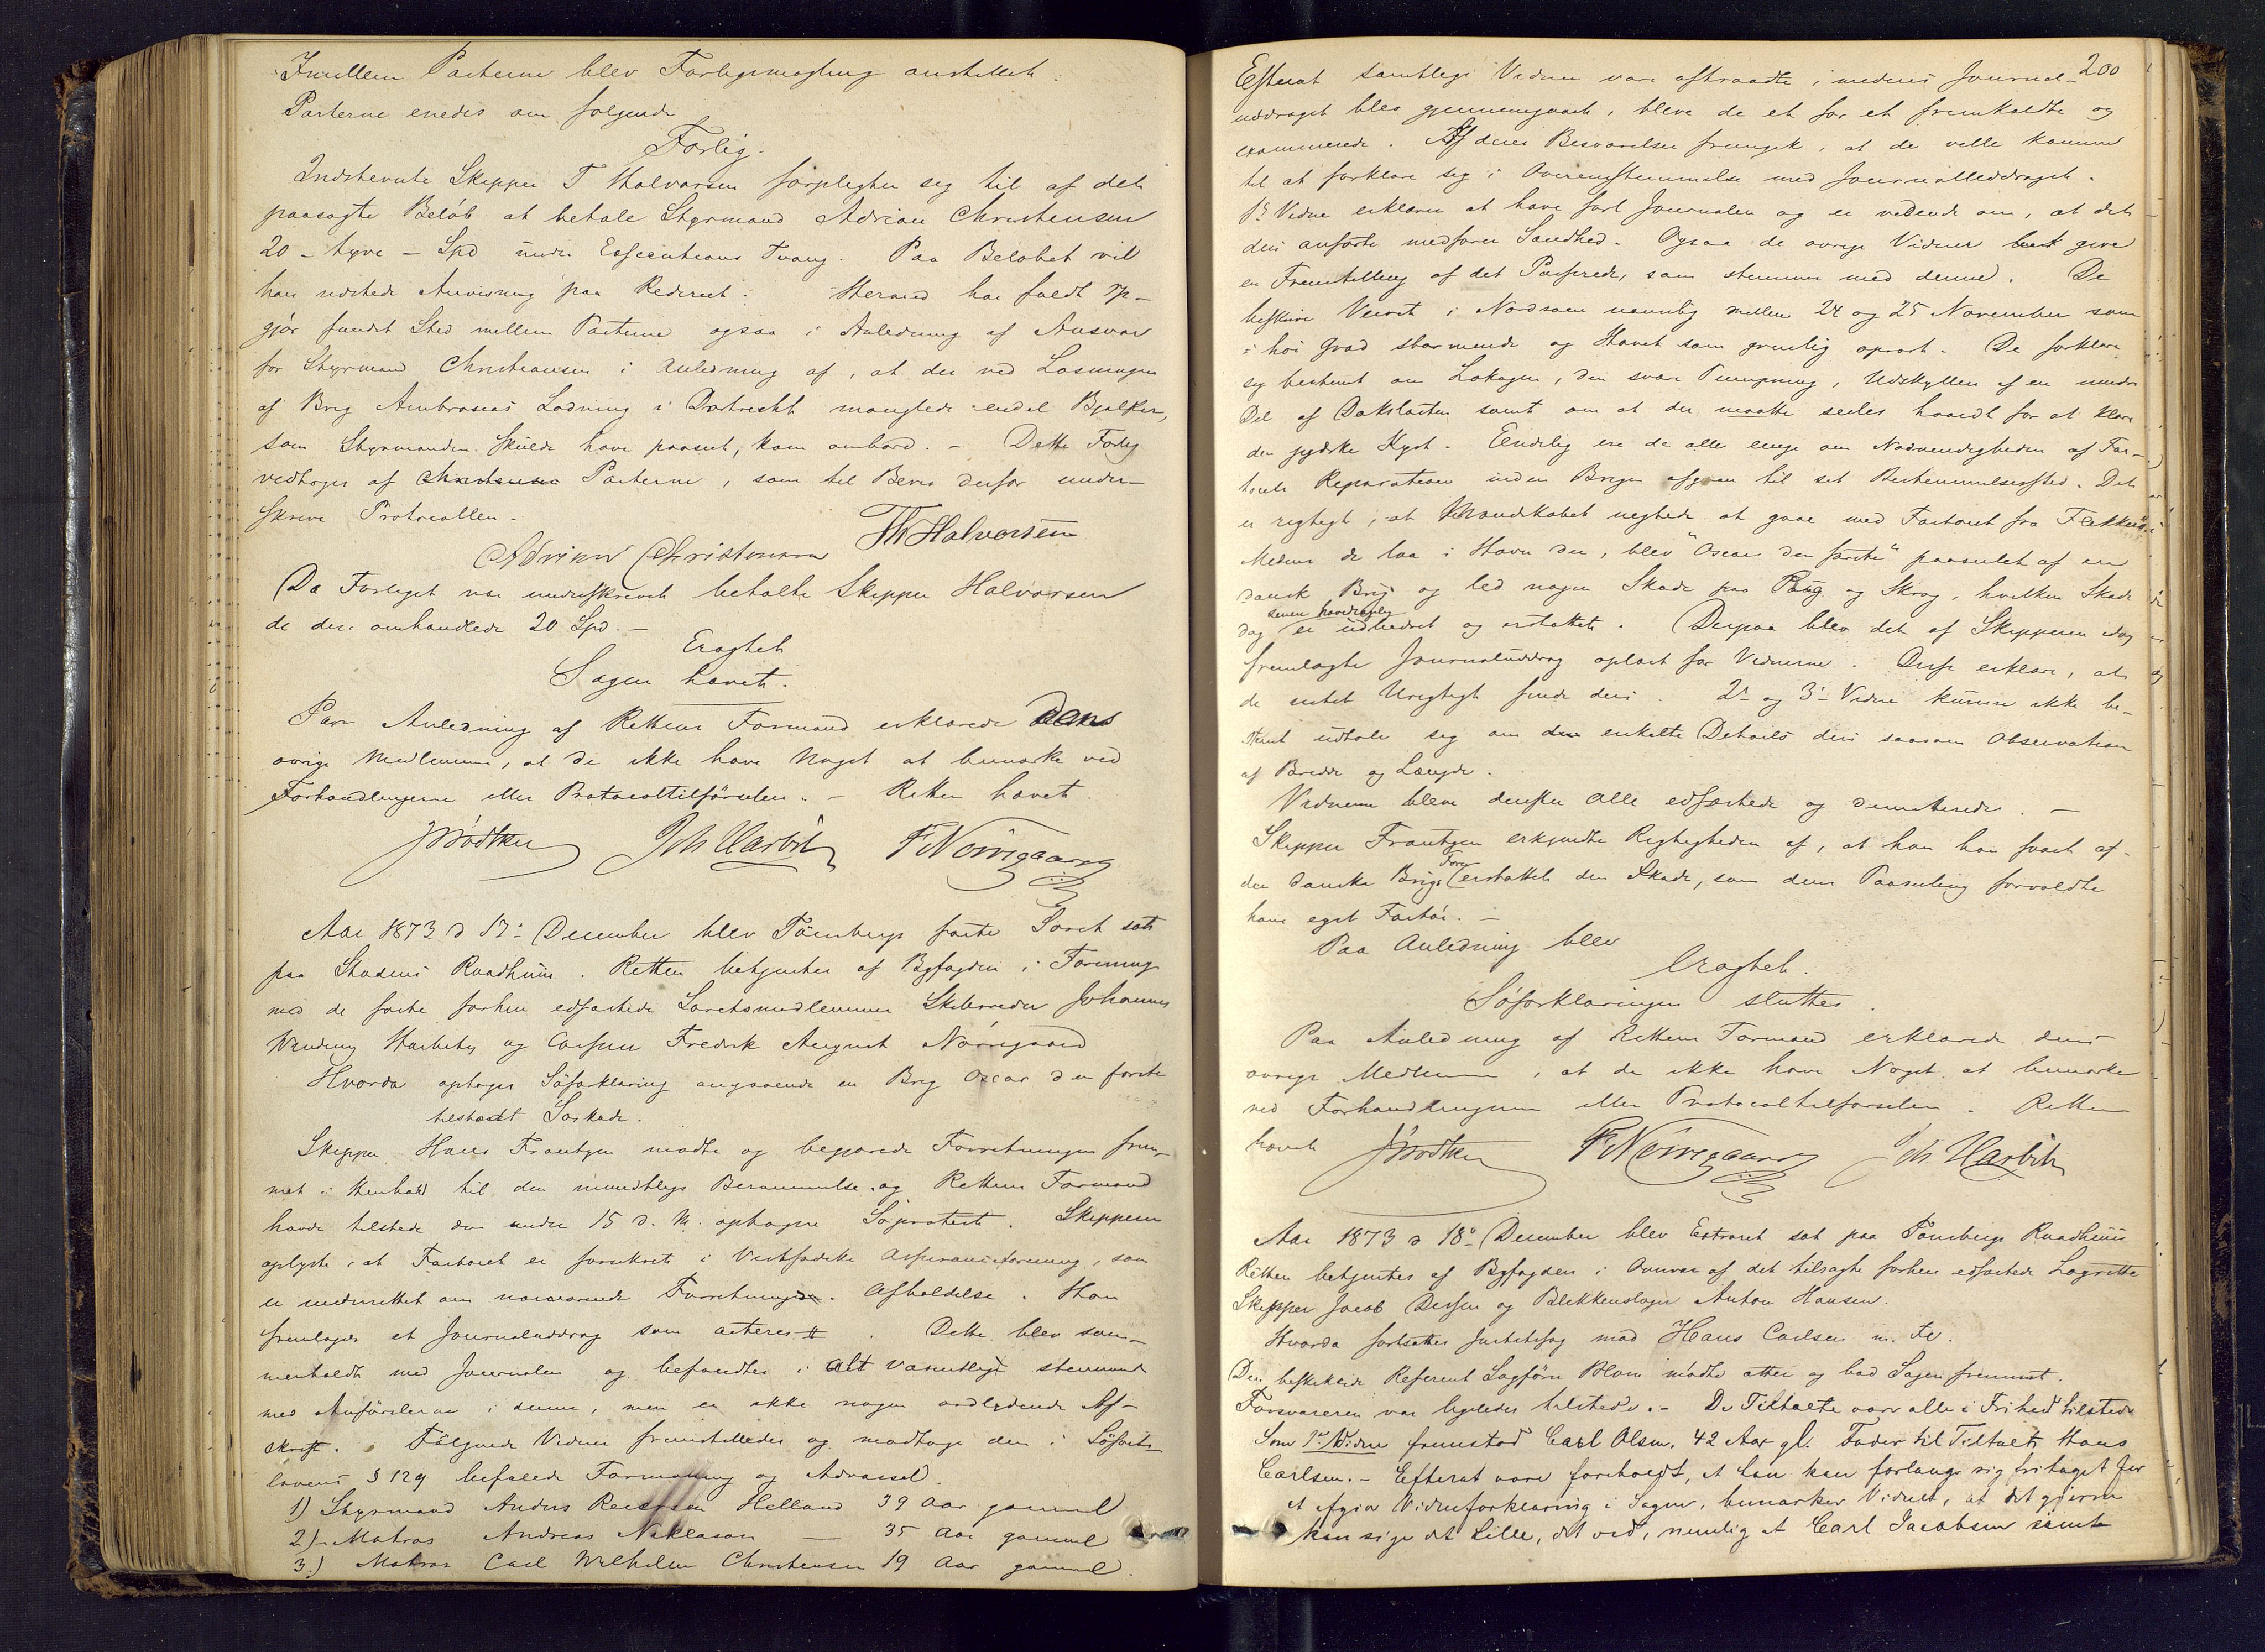 Imellem Parterne blev Forligsmægling anstillet.
Parterne enedes om følgende
Forlig.
Indstevnte Skipper T Halvorsen forpligter sig til af det
paasagte Beløb at betale Styrmand Adrian Christensen
20 – tyve – Spd under Executions Tvang. Paa Beløbet vil
han udstede Anvisning paa Rederiet. Hermed har fuldt Op-
gjør fundet Sted mellem Parterne ogsaa i Anledning af Ansvar
for Styrmand Christensen i Anledning af, at der ved Losningen
af Brig Ambrosias Ladning i Dortrecht manglede endel Bjelker,
som Styrmanden skulde have paaseet, kom ombord. – Dette Forlig
vedtoges af Christensen Parterne, som til Bevis derfor under-
skreve Protocollen.
Adrian Christensen Th Halvorsen
Da Forliget var underskrevet betalte Skipper Halvorsen
de deri omhandlede 20 Spd. –
Eragtet
Sagen hævet.
Paa Anledning af Rettens Formand erklærede dens
øvrige Medlemmer, at de ikke have Noget at bemærke ved
Forhandlingerne eller Protocoltilførselen. – Retten hævet.
J Bödtker Joh Harbitz F Nörregaard
Aar 1873 d 17de December blev Tönsbergs faste Söret sat
paa Stadens Raadhuus. Retten betjentes af Byfogden i Forening
med de faste forhen edfæstede Søretsmedlemmer Skibsreder Johannes
Harbitz og Fredrik August Nörregaard
Hvorda optoges Söforklaring angaaende en Brig Oscar den første
tilstødt Søskade.
Skipper Hans Frantzen mødte og begjærede Forretningen frem-
met i Henhold til den mundtlige Berammelse og Rettens Formand
havde tilstede den under 15 d. M. optagne Søprotest. Skipperen
oplyste, at Fartøiet er forsikret i Vestfoldske Assuranceforening, som
er underrettet om nærværende Forretnings Afholdelse. Han
fremlagde et Journaluddrag som acteres #. Dette blev sam-
menholdt med Journalen og befandtes i alt væsentligt stemmende
med Anførslerne i denne, men er ikke nogen ordlydende Af-
skrift. Følgende Vidner fremstilledes og modtoge den i Söfarts-
lovens § 129 befalede Formaning og Advarsel.
1) Styrmand Anders Helland 39 Aar gammel
2) Matros Andreas Niklason – 35 Aar gammel
3.) Matros Carl Wilhelm Christensen 19 Aar gammel.
200
Efterat samtlige Vidner vare aftraadte, imedens Journal-
uddraget blev gjennemgaaet, bleve de et for et fremkaldte og
examinerede. Af deres Besvarelser fremgik, at de ville komme
til at forklare sig i Overensstemmelse med Journaluddraget.
1ste Vidne erklærer at have ført Journalen og er vidende om, at det
deri anførte medfører Sandhed. Ogsaa de øvrige Vidner give
en Fremstilling af det Passerede, som stemmer med denne. De
beskrive Veiret i Nordsøen navnlig mellem 24 og 25 November som
i høi Grad stormende og Havet som gruelig oprørt. De forklare
sig bestemt om Lækagen, den svære Pumpning, Udskyllen af en mindre
Del af Dækslasten samt om at der maatte seiles haardt for at klare
den jydske Kyst. Endelig ere de alle enige om Nødvendigheden af Far-
tøiets Reparation inden Brigen afgaaer til sit Bestemmelsessted. Det
er rigtigt, at Mandskabet negtede at gaae med Fartøiet fra Flekkerö.
Medens de laa i Havn der, blev "Oscar den første" paaseilet af en
dansk Brig og led nogen Skade paa Rig og Skrog, hvilken Skade
dog
er udbedret og erstattet. Derpaa blev det af Skipperen idag
fremlagte Journaluddrag oplæst for Vidnerne. Disse erklære, at
de intet Urigtigt finde deri. 2det og 3die Vidne kunne ikke be-
stemt udtale sig om enkelte Details deri saasom Observation
af Bredde og Længde.
Vidnerne bleve derefter alle edfæstede og dimitterede. –
Skipper Frantzen erkjendte Rigtigheden af, at han har faaet af
den danske Brigs Fører erstattet den Skade, som dens Paaseiling forvoldte
hans eget Fartøi. –
Paa Anledning blev
Eragtet.
Söforklaringen sluttes.
Paa Anledning af Rettens Formand erklærede dens
øvrige Medlemmer, at de ikke have Noget at bemærke
ved Forhandlingerne eller Protocoltilførselen. Retten
hævet J Bödtker F Nörregaard Joh Harbitz
Aar 1873 d 18de December blev Extraret sat paa Tønsbergs Raadhuus
Retten betjentes af Byfogden i Overvær af det tilsagte forhen edfæstede Lagrette
Skipper Jacob og Blikkenslager Anton Hansen.
Hvorda fortsattes Justitssag mod Hans Carlsen m. Fl.
Den beskikkede Referent Sagfører Blom mødte atter og bad Sagen fremmet.
Forsvareren var ligeledes tilstede. – De Tiltalte vare alle i Frihed tilstede
Som 1ste Vidne fremstod Carl Olsen, 42 Aar gl. Fader til Tiltalte Hans
Carlsen. – Efterat være foreholdt, at han kan forlange sig fritaget for
at afgive Vidneforklaring i Sagen, bemærker Vidnet, at det gjerne
kan sige det Lille, det ved, nemlig at Carl Jacobsen samt